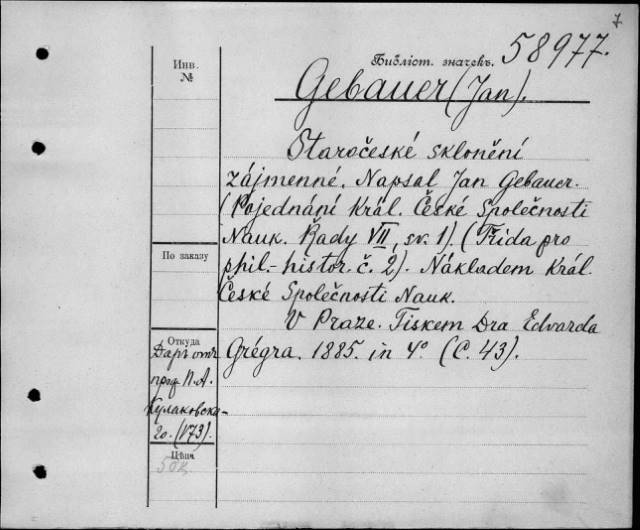 7
Инв.
№
Библіот. значекъ. 58977.
Gebauer (Jan).
Staročeské sklonění
zájmenné. Napsal Jan Gebauer.
(Pojednání Král. České Společnosti
Nauk. Řady VII, sv. 1). (Třída pro
По заказу
phil.-histor. č. 2). Nákladem Král.
České Společnosti Nauk.
V Praze. Tiskem Dra Edvarda
Откуда
Grégra. 1885. in 4° (С. 43).
Даръ отъ
проф. П. А.
Кулаковска-
го. (V73).
Цѣна
50к